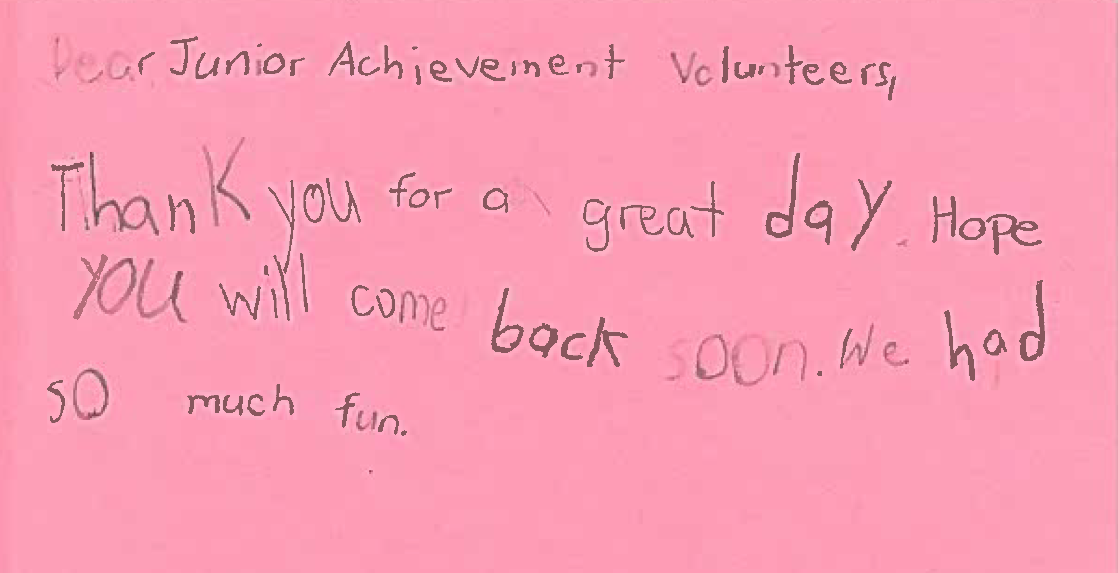 Dear Junior Achievement Volunteers,
Thank you for a great day. Hope
you will come back soon. We had
so much fun.